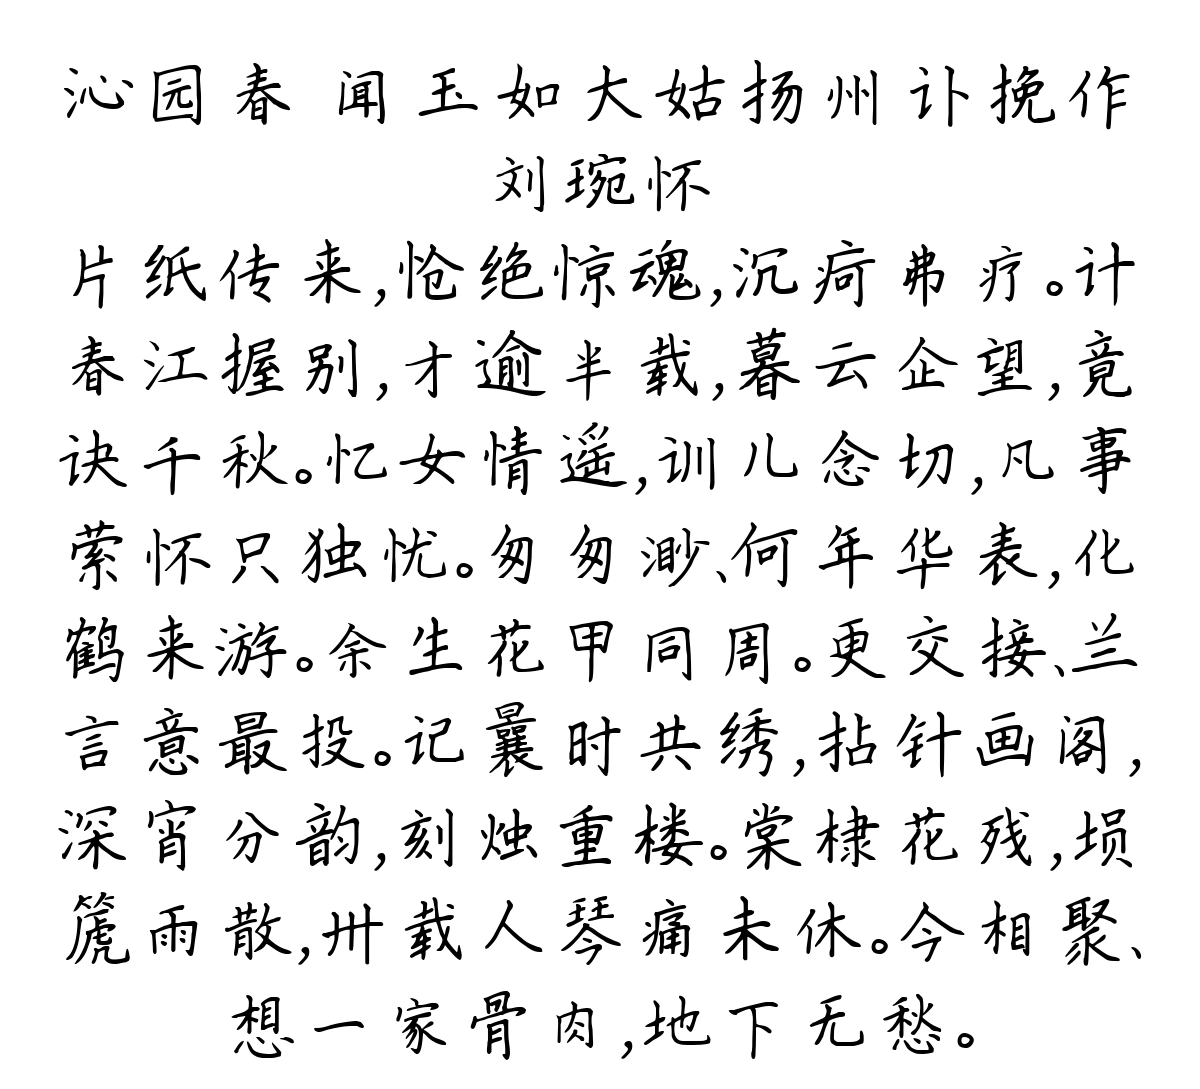 沁园春 闻玉如大姑扬州讣挽作
刘琬怀
片纸传来,怆绝惊魂,沉疴弗疗。计
春江握别,才逾半载,暮云企望,竟
诀千秋。忆女情遥,训儿念切,凡事
萦怀只独忧。匆匆渺、何年华表,化
鹤来游。余生花甲同周。更交接、兰
言意最投。记曩时共绣,拈针画阁,
深宵分韵,刻烛重楼。棠棣花残,埙
篪雨散,卅载人琴痛未休。今相聚、
想一家骨肉,地下无愁。